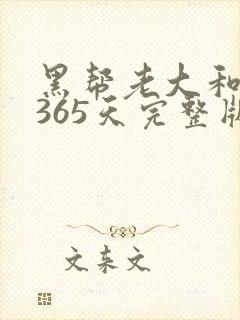 黑帮老大和
365天完整版
文东文